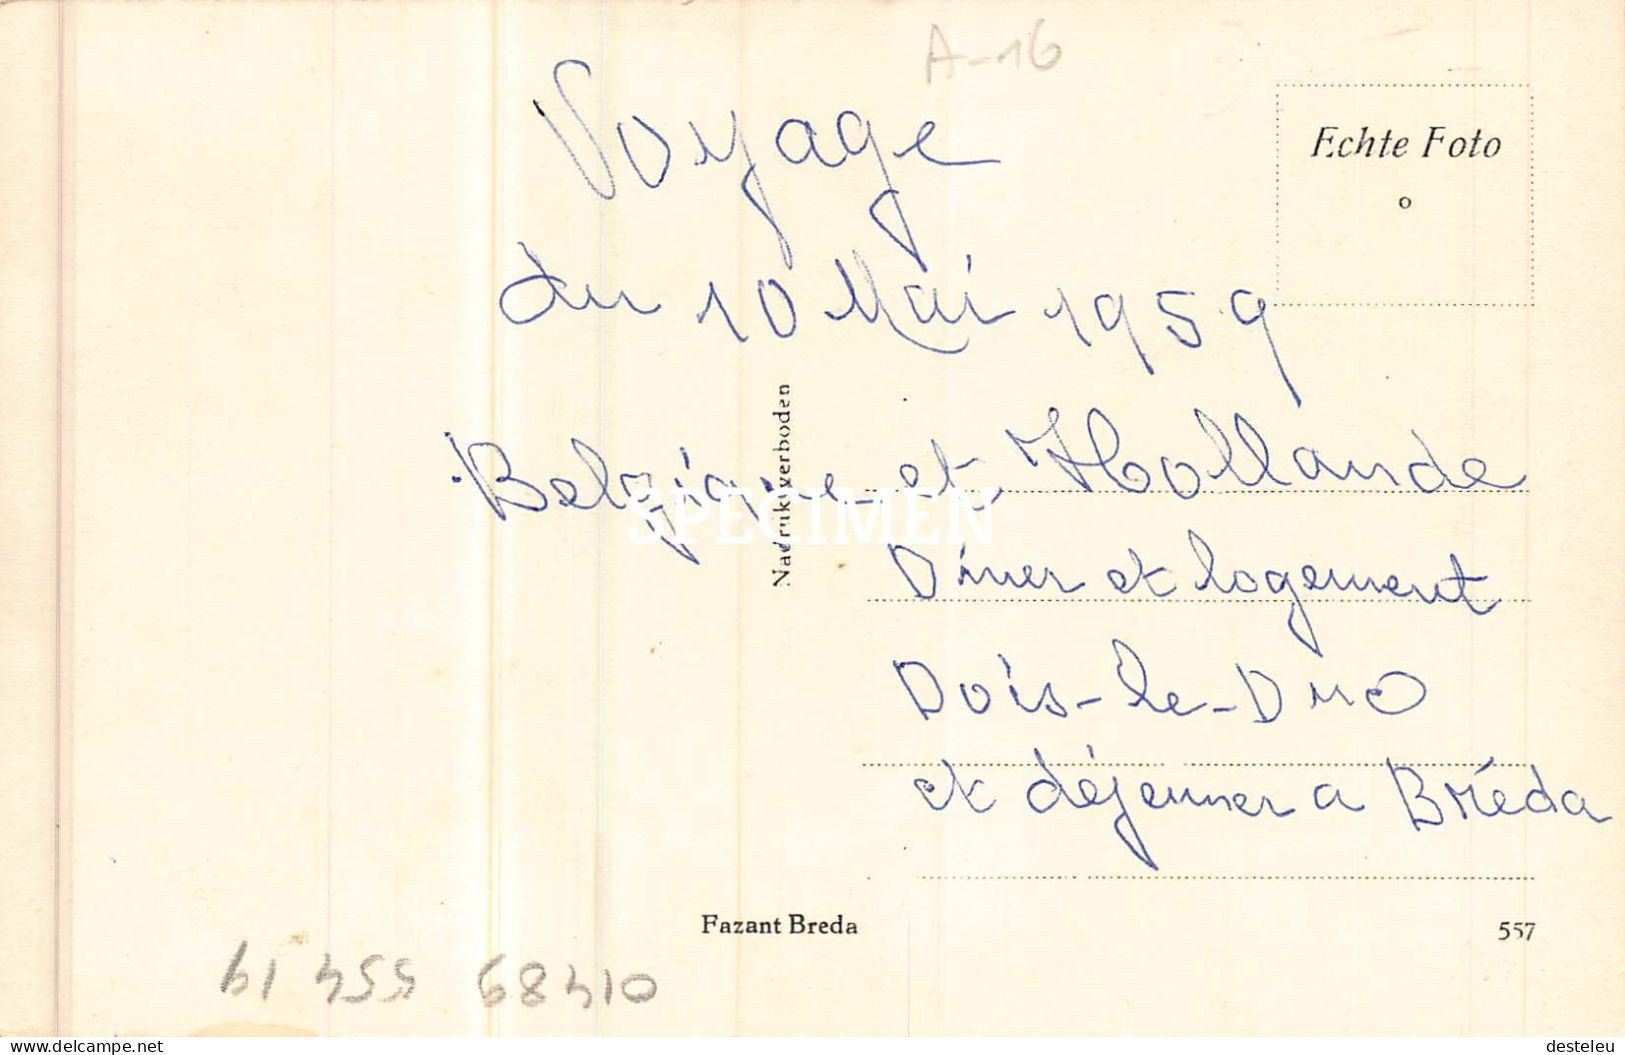 A-16
Voyage
Echte Foto
du 10 Mai 1959
Belgique et Hollande
Nadruk verboden
SPECIMEN
Diner et logement
Dois-le-Duc
et déjeuner a Bréda
Fazant Breda
557
delcampe.net
desteleu